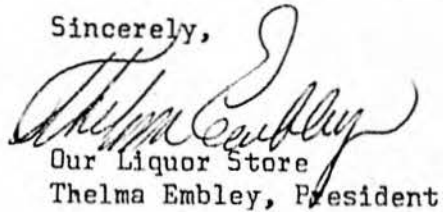 Sincerely,
Thelma Embley
Our Liquor Store
Thelma Embley, President